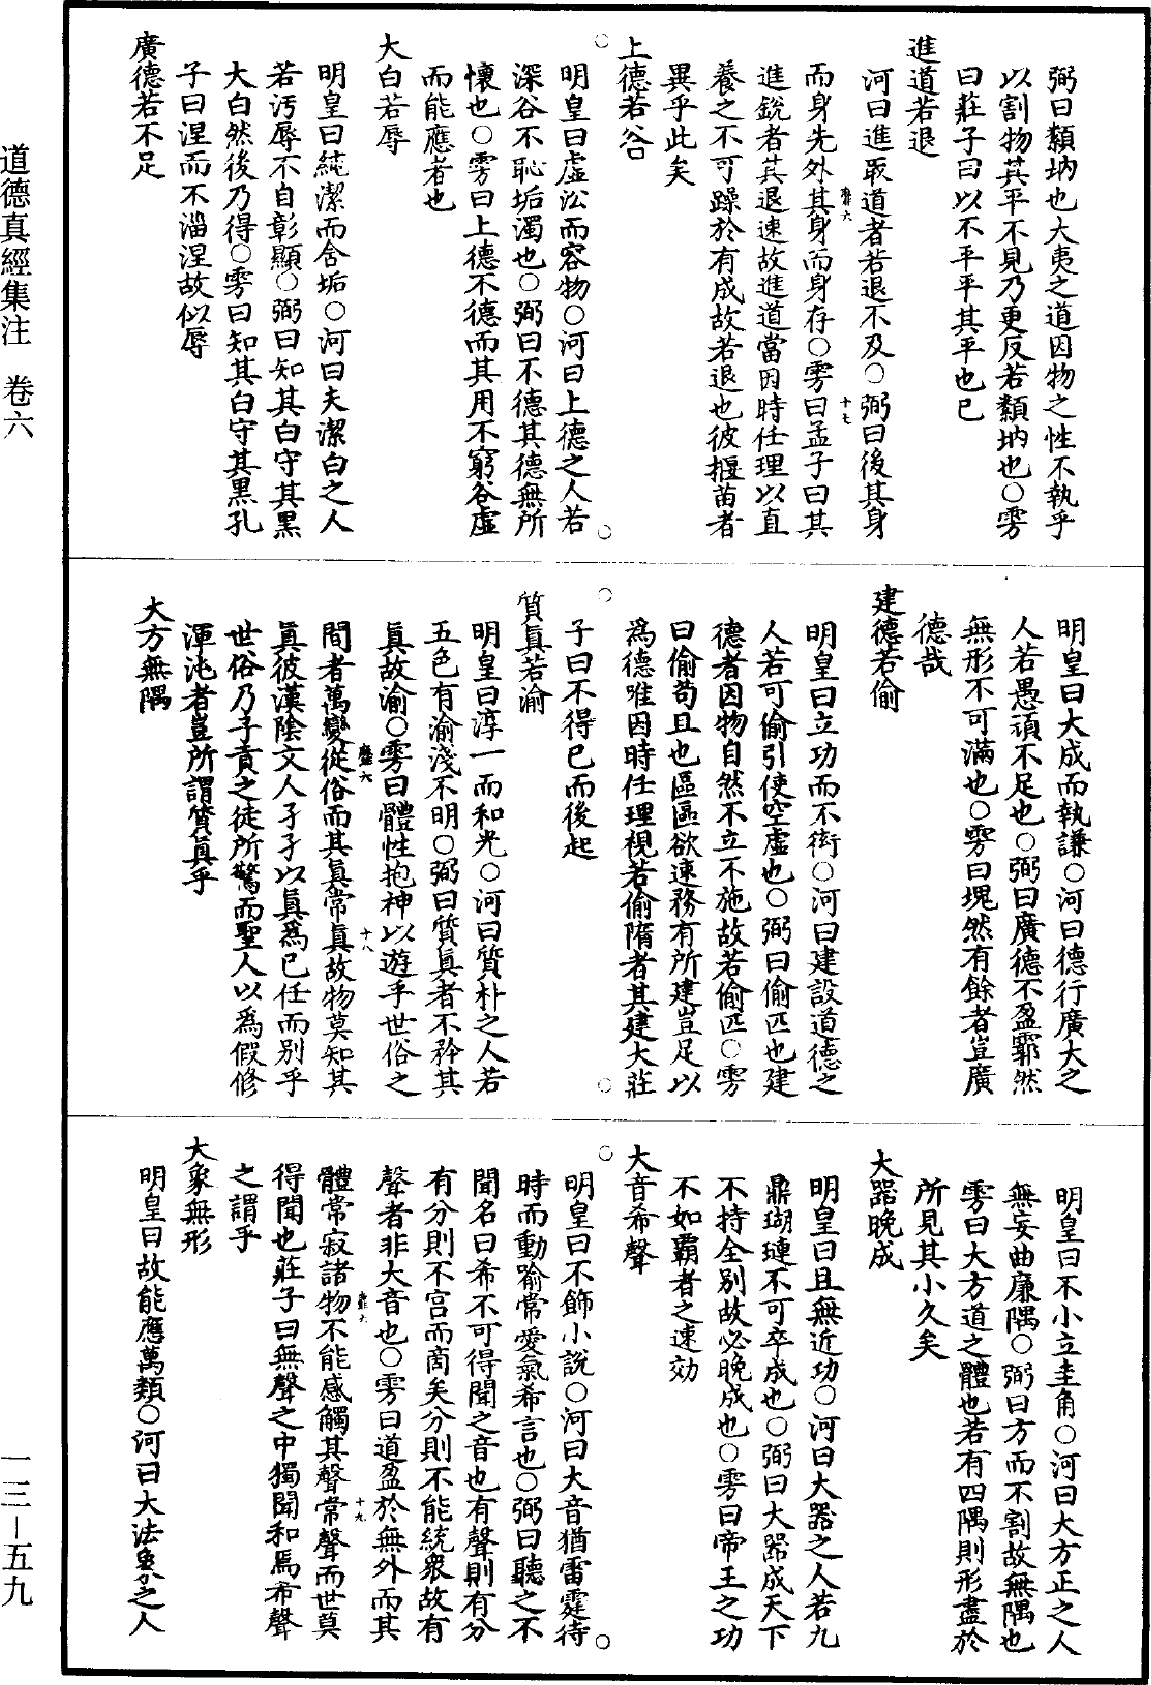 弼曰纇㘨也大夷之道因物之性不執乎
以割物其平不見乃更反若纇㘨也○雱
曰莊子曰以不平平其平也已
進道若退
河曰進取道者若退不及○弼曰後其身
而身先外其身而身存○雱曰孟子曰其
進銳者其退速故進道當因時任理以直
養之不可躁於有成故若退也彼揠苗者
異乎此矣
上德若谷
明皇曰虛㳂而容物○河曰上德之人若
深谷不恥垢濁也○弼曰不德其德無所
懷也○雱曰上德不德而其用不窮谷虛
而能應者也
大白若辱
明皇曰純潔而含垢○河曰夫潔白之人
若汚辱不自彰顯○弼曰知其白守其黑
大白然後乃得○雱曰知其白守其黑孔
子曰涅而不淄涅故似辱
廣德若不足
明皇曰大成而執謙○河曰德行廣大之
人若愚頑不足也○弼曰廣德不盈霩然
無形不可滿也○雱曰塊然有餘者豈廣
德哉
建德若偷
明皇曰立功而不衒○河曰建設道德之
人若可偷引使空虛也○弼曰偷匹也建
德者因物自然不立不施故若偷匹○雱
曰偷苟且也區區欲速務有所建豈足以
爲德唯因時任理視若偷隋者其建大莊
子曰不得已而後起
質真若渝
明皇曰淳一而和光○河曰質朴之人若
五色有渝淺不明○弼曰質真者不矜其
真故渝○雱曰體性抱神以遊乎世俗之
間者萬變從俗而其真常真故物莫知其
真彼漢陰文人孑孑以真爲己任而别乎
世俗乃子貢之徒所驚而聖人以爲假修
渾沌者豈所謂質真乎
大方無隅
明皇曰不小立圭角○河曰大方正之人
無妄曲廉隅○弼曰方而不割故無隅也
雱曰大方道之體也若有四隅則形盡於
所見其小久矣
大器晚成
明皇曰且無近功○河曰大器之人若九
鼎瑚璉不可卒成也○弼曰大器成天下
不持全别故必晚成也○雱曰帝王之功
不如霸者之速効
大音希聲
明皇曰不飾小說○河曰大音猶雷霆待
時而動喻常愛氣希言也○弼曰聽之不
聞名曰希不可得聞之音也有聲則有分
有分則不宫而商矣分則不能統衆故有
聲者非大音也○雱曰道盈於無外而其
體常寂諸物不能感觸其聲常聲而世莫
得聞也莊子曰無聲之中獨聞和焉希聲
之謂乎
大象無形
明皇曰故能應萬類○河曰大法象之人
道德真經集注　卷六
一三－五九